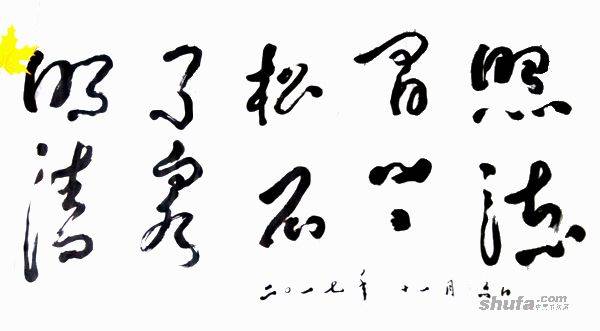 明月松間照
清泉石上流
二〇一七年十一月六日
shufa.com